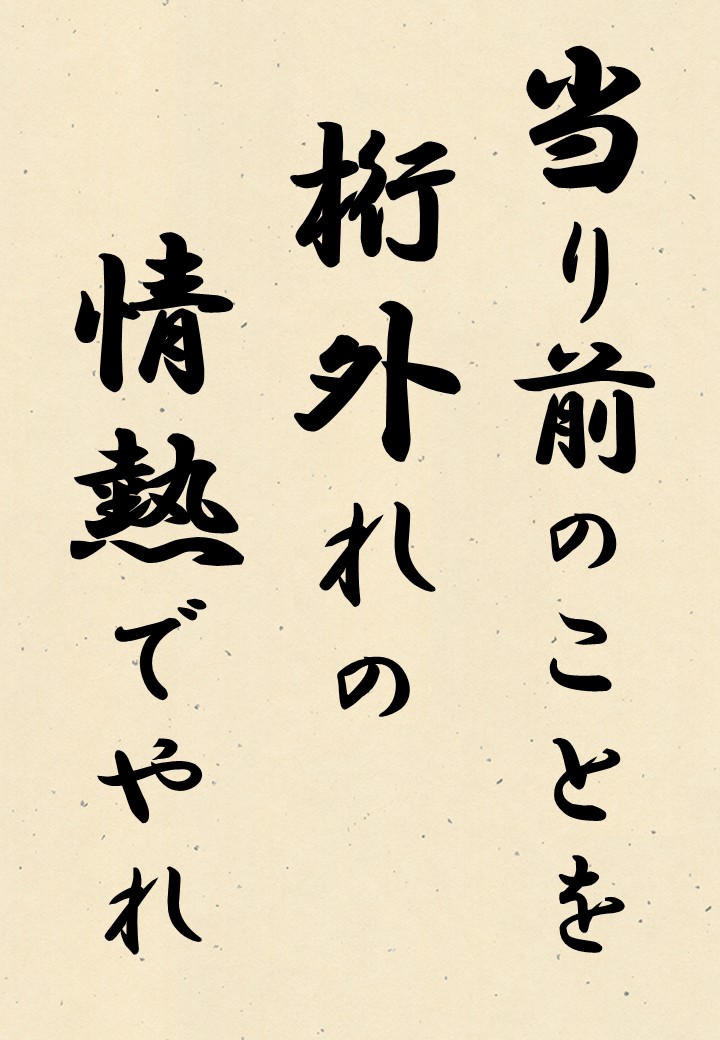 当り前のことを
桁外れの
情熱でやれ